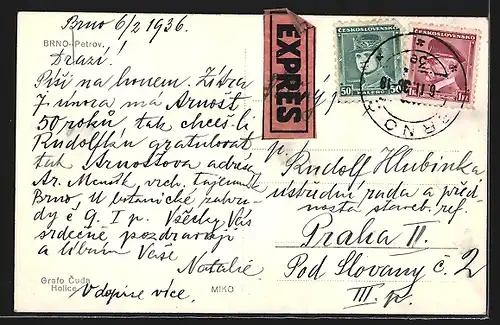 Brno 6/2 1936.
BRNO-Petrov.
Drazí!
Píši na honem. Zítra
7 února má Arnošt
50 roků tak chceš-li
Rudolfkán gratulovat
tak Arnoštova adresa
Ar. Menšík, vrch. tajemník
Brno, U botanické zahra-
dy č 9. I p. Všecky Vás
srdečně pozdravuji
a líbám Vaše
Natalie.
V dopise více.
Grafo Čuda
Holice
MIKO
EXPRÈS
ČESKOSLOVENSKO
50 HALÉŘŮ 50
ČESKOSLOVENSKO
BRNO
p.
Rudolf Hlubinka
ústřední rada a před-
nosta staveb. ref.
Praha II.
Pod Slovany č. 2
III. p.